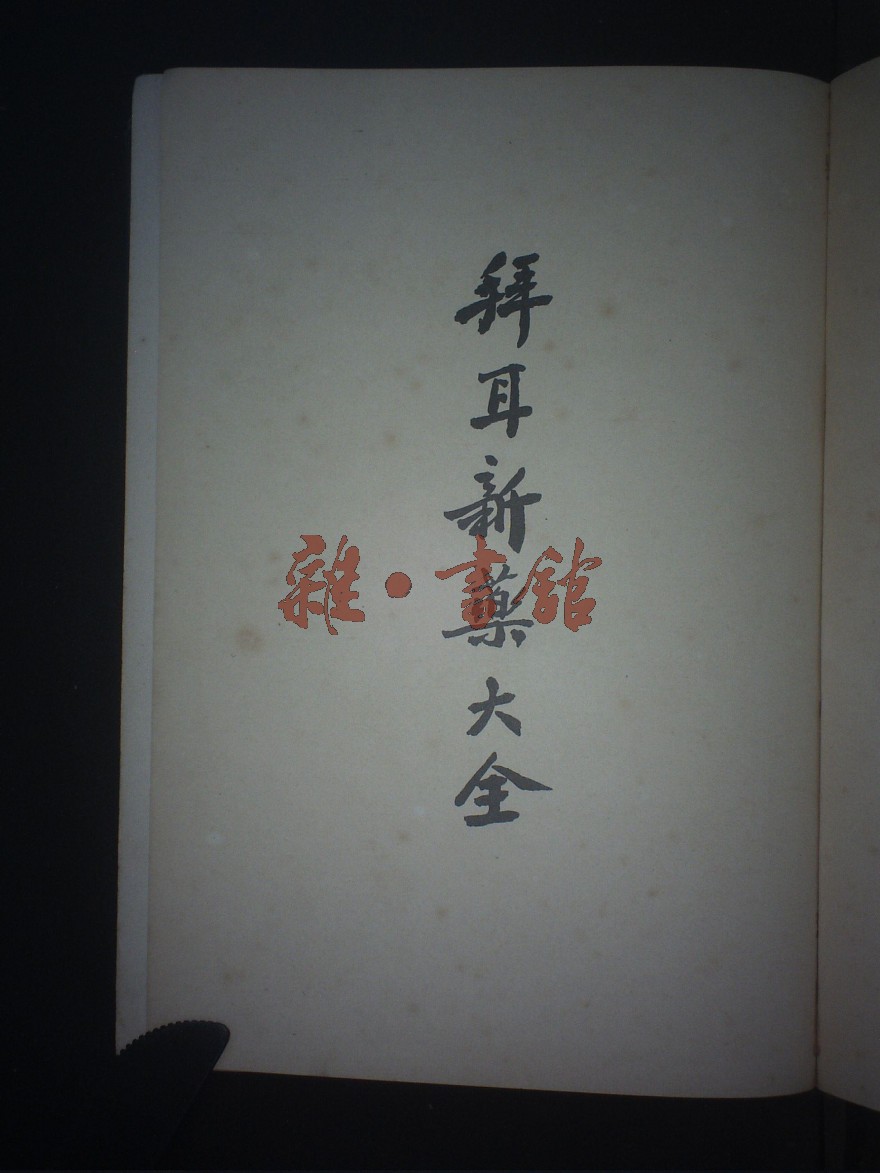 拜耳新藥大全
雜·書館